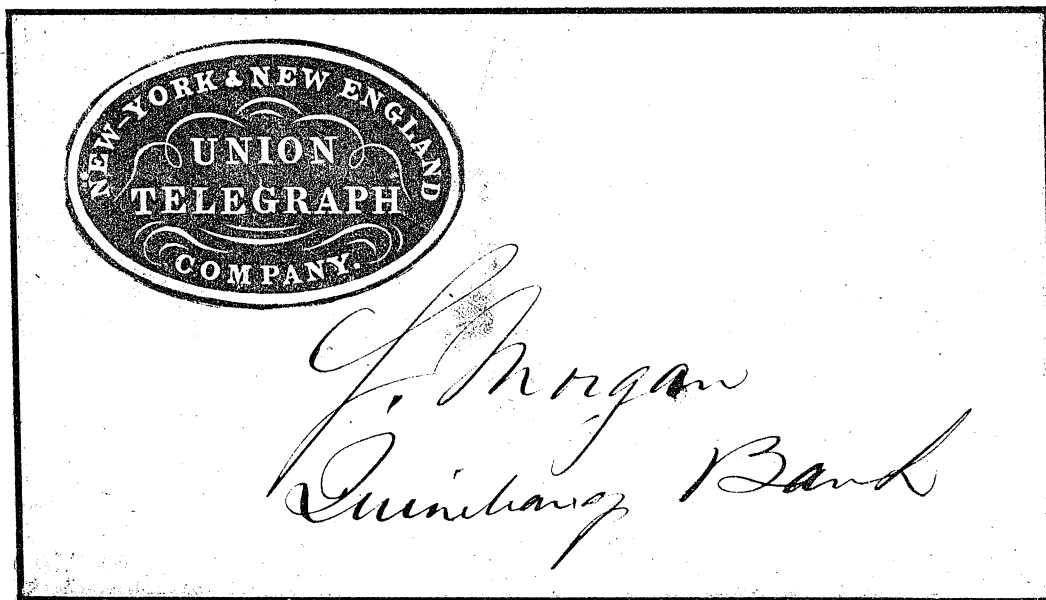 NEW-YORK & NEW ENGLAND
UNION
TELEGRAPH
COMPANY.
Morgan
Quinebaug Bank